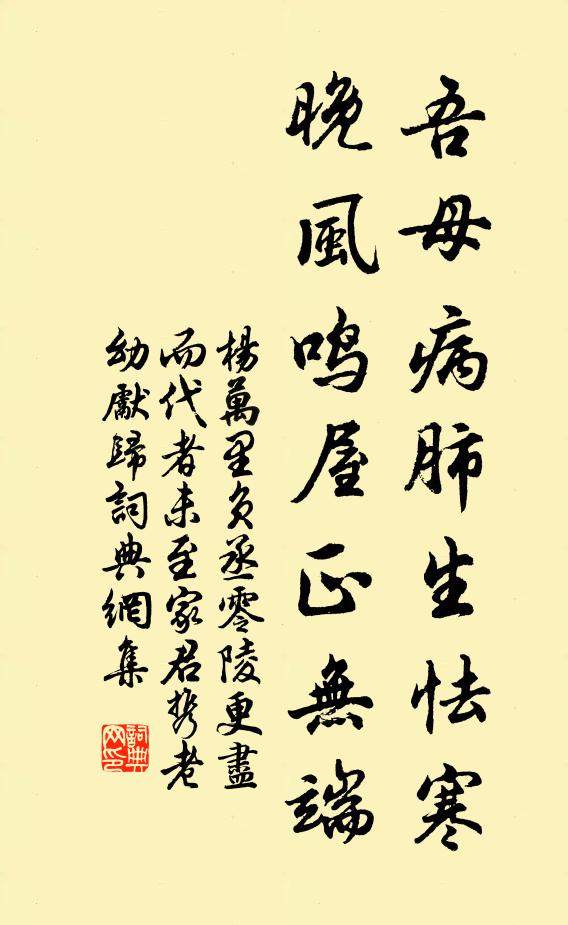 吾母病肺生怯寒
晚風鳴屋正無端
楊萬里負丞零陵更盡
而代者未至家君攜老
幼獻歸詞典網集
詞典
網印